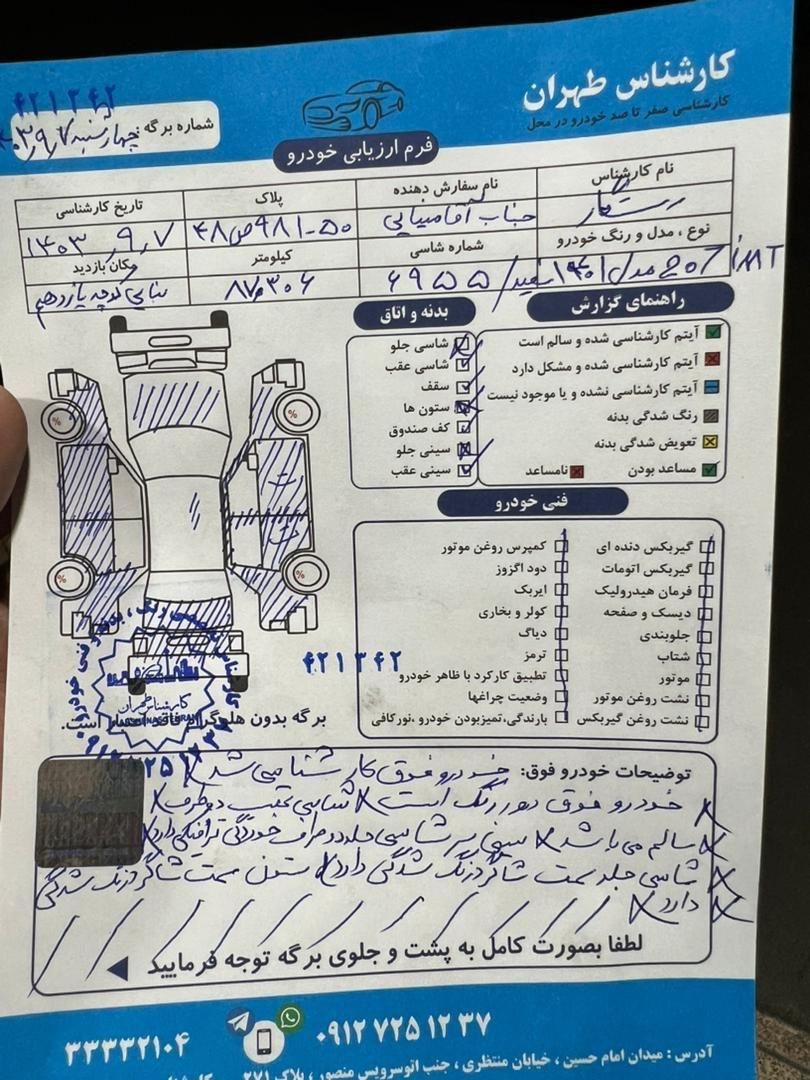 کارشناس طهران
کارشناسی صفر تا صد خودرو در محل
۴۲۱۳۴۲
شماره برگه: چهارشنبه
فرم ارزیابی خودرو
نام کارشناس
نام سفارش دهنده
پلاک
تاریخ کارشناسی
رستگار
جناب آقا مینایی
۵۰-۹۸۱ص۴۸
۱۴۰۳,۹,۷
نوع ، مدل و رنگ خودرو
شماره شاسی
کیلومتر
مکان بازدید
207 مدل ۱۴۰۱ سفید iMT
۶۹۵۵
۸۷,۳۰۶
مینایی کوچه یازدهم
راهنمای گزارش
آیتم کارشناسی شده و سالم است
آیتم کارشناسی شده و مشکل دارد
آیتم کارشناسی نشده و یا موجود نیست
رنگ شدگی بدنه
تعویض شدگی بدنه
مساعد بودن
نامساعد
بدنه و اتاق
شاسی جلو
شاسی عقب
سقف
ستون ها
کف صندوق
سینی جلو
سینی عقب
%
%
%
%
فنی خودرو
گیربکس دنده ای
گیربکس اتومات
فرمان هیدرولیک
دیسک و صفحه
جلوبندی
شتاب
موتور
نشت روغن موتور
نشت روغن گیربکس
کمپرس روغن موتور
دود اگزوز
ایربک
کولر و بخاری
دیاگ
ترمز
تطبیق کارکرد با ظاهر خودرو
وضعیت چراغها
بارندگی،تمیزبودن خودرو ،نورکافی
۴۲۱۳۴۲
کارشناس طهران
برگه بدون هلوگرام فاقد اعتبار است.
توضیحات خودرو فوق: خودرو فوق کارشناسی شد X
X خودرو فوق دور رنگ است X شاسی عقب دو طرف X
X سالم می باشد X سینی سر شاسی جلو دو طرف خوردگی ترافیکی دارد X
X شاسی جلو سمت شاگرد رنگ شدگی دارد X ستون سمت شاگرد رنگ شدگی
X دارد X
لطفا بصورت کامل به پشت و جلوی برگه توجه فرمایید
۰۹۱۲ ۷۲۵ ۱۲ ۳۷
۳۳۳۳۲۱۰۴
آدرس : میدان امام حسین ، خیابان منتظری ، جنب اتوسرویس منصور ، پلاک ۲۷۱